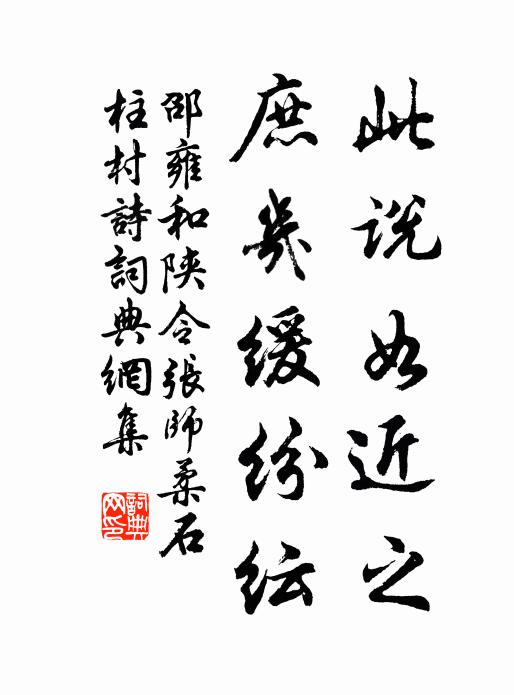 此说如近之
庶几缓纷纭
邵雍和陕令張師柔石
柱村詩詞典網集
詞典
网印